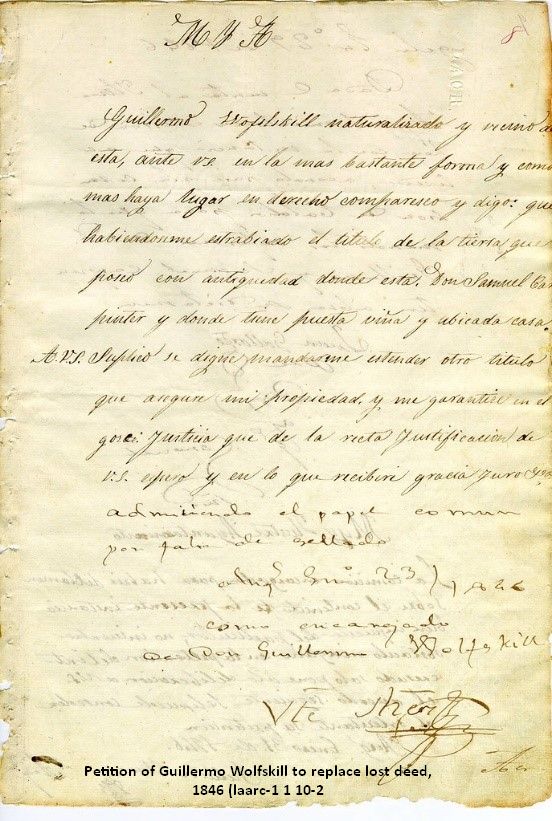 8
M Y A
Guillermo Wofelskill naturalizado y vecino de
esta, ante V.S. en la mas bastante forma y como
mas haya lugar en derecho comparesco y digo: que
habiendoseme estrabiado el titulo de la tierra que
poseo con antiguedad donde está Don Samuel Car
pinter y donde tiene puesta viña y ubicada casa.
A.V.S. Suplico se digne mandarme estender otro titulo
que asegure mi propiedad, y me garantise en el
gose: Justicia que de la recta Justificacion de
V.S. espero y en lo que recibiré gracia Juro
admitiendo el papel comun
por falta de sellado
Ang.s En.o 23/1846
como encargado
de Don Guillermo Wolfskill
Petition of Guillermo Wolfskill to replace lost deed,
1846 (laarc-1 1 10-2